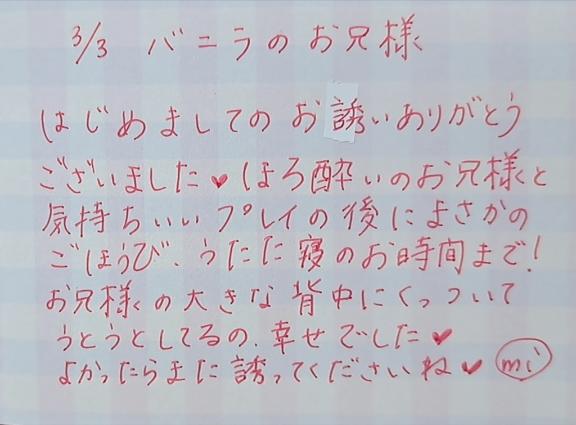 3/3 バニラのお兄様
はじめましてのお誘いありがとう
ございました♥ほろ酔いのお兄様と
気持ちいいプレイの後にまさかの
ごほうび、うたた寝のお時間まで!
お兄様の大きな背中にくっついて
うとうとしてるの、幸せでした♥
よかったらまた誘ってくださいね♥ mi